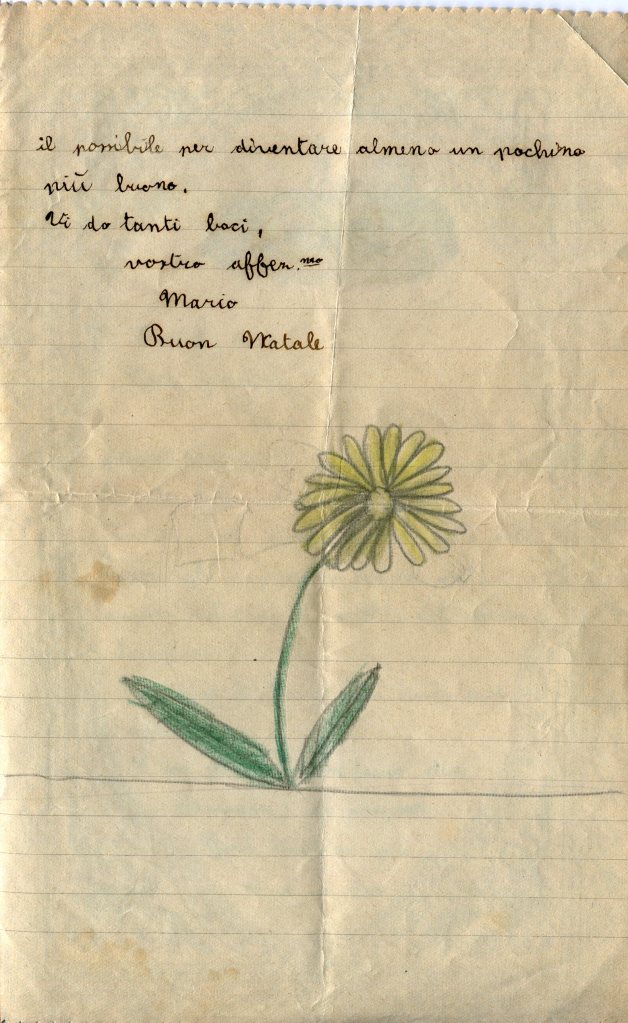 il possibile per diventare almeno un pochino
più buono.
Vi do tanti baci,
vostro affez.mo
Mario
Buon Natale